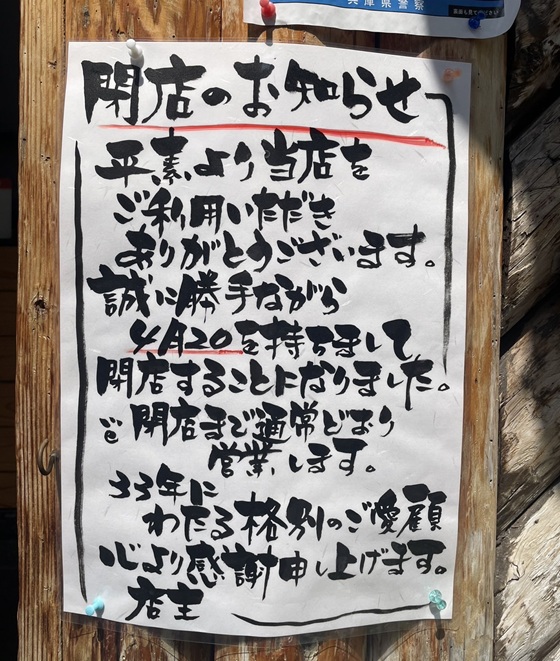 兵庫県警察
閉店のお知らせ
平素より当店を
ご利用いただき
ありがとうございます。
誠に勝手ながら
4月20を持ちまして
閉店することになりました。
閉店まで通常どおり
営業します。
33年に
わたる格別のご愛顧
心より感謝申し上げます。
店主